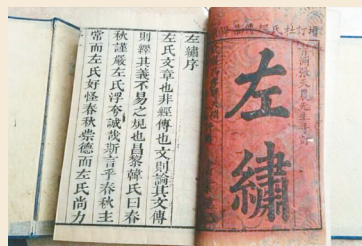 左繡
左繡序
左氏文章也非經傳也文則論其文傳
則釋其義不易之規也昌黎韓氏曰春
秋謹嚴左氏浮夸誠哉斯言乎春秋主
常而左氏好怪春秋崇德而左氏尚力